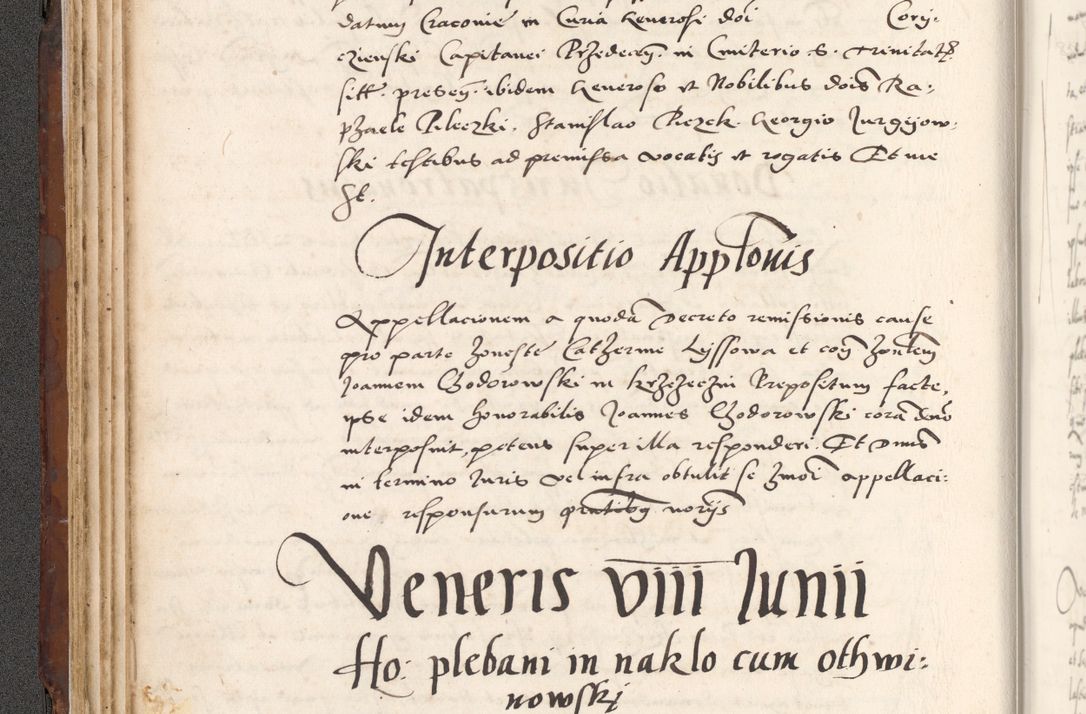 datum Cracovie in Curia Generosi doi Cory:
czienski Capitanei Przedecz. in Cmiterio S. Trinitatis
sitt. presen. ibidem Generoso et Nobilibus dois Ra:
phaele Pileczki, Stanislao Rezek. Georgio Jurgijow:
ski testibus ad premissa vocatis et rogatis Et me
St.
Interpositio Appłonis
Appellacionem a quodā Decreto remissionis cause
pro parte honeste Catherine Lyssowa et con
Joannem Chodorowski in Prepositum facte,
ipse idem honorabilis Joannes Chodorowski corā dno
interposuit, petens super illa responderi. Et Dnus
in termino Juris vel infra obtulit se hmoi appellaci:
one responsurum pntibus norijs
Veneris viii Junii
Ho: plebani in naklo cum othwi:
nowskj